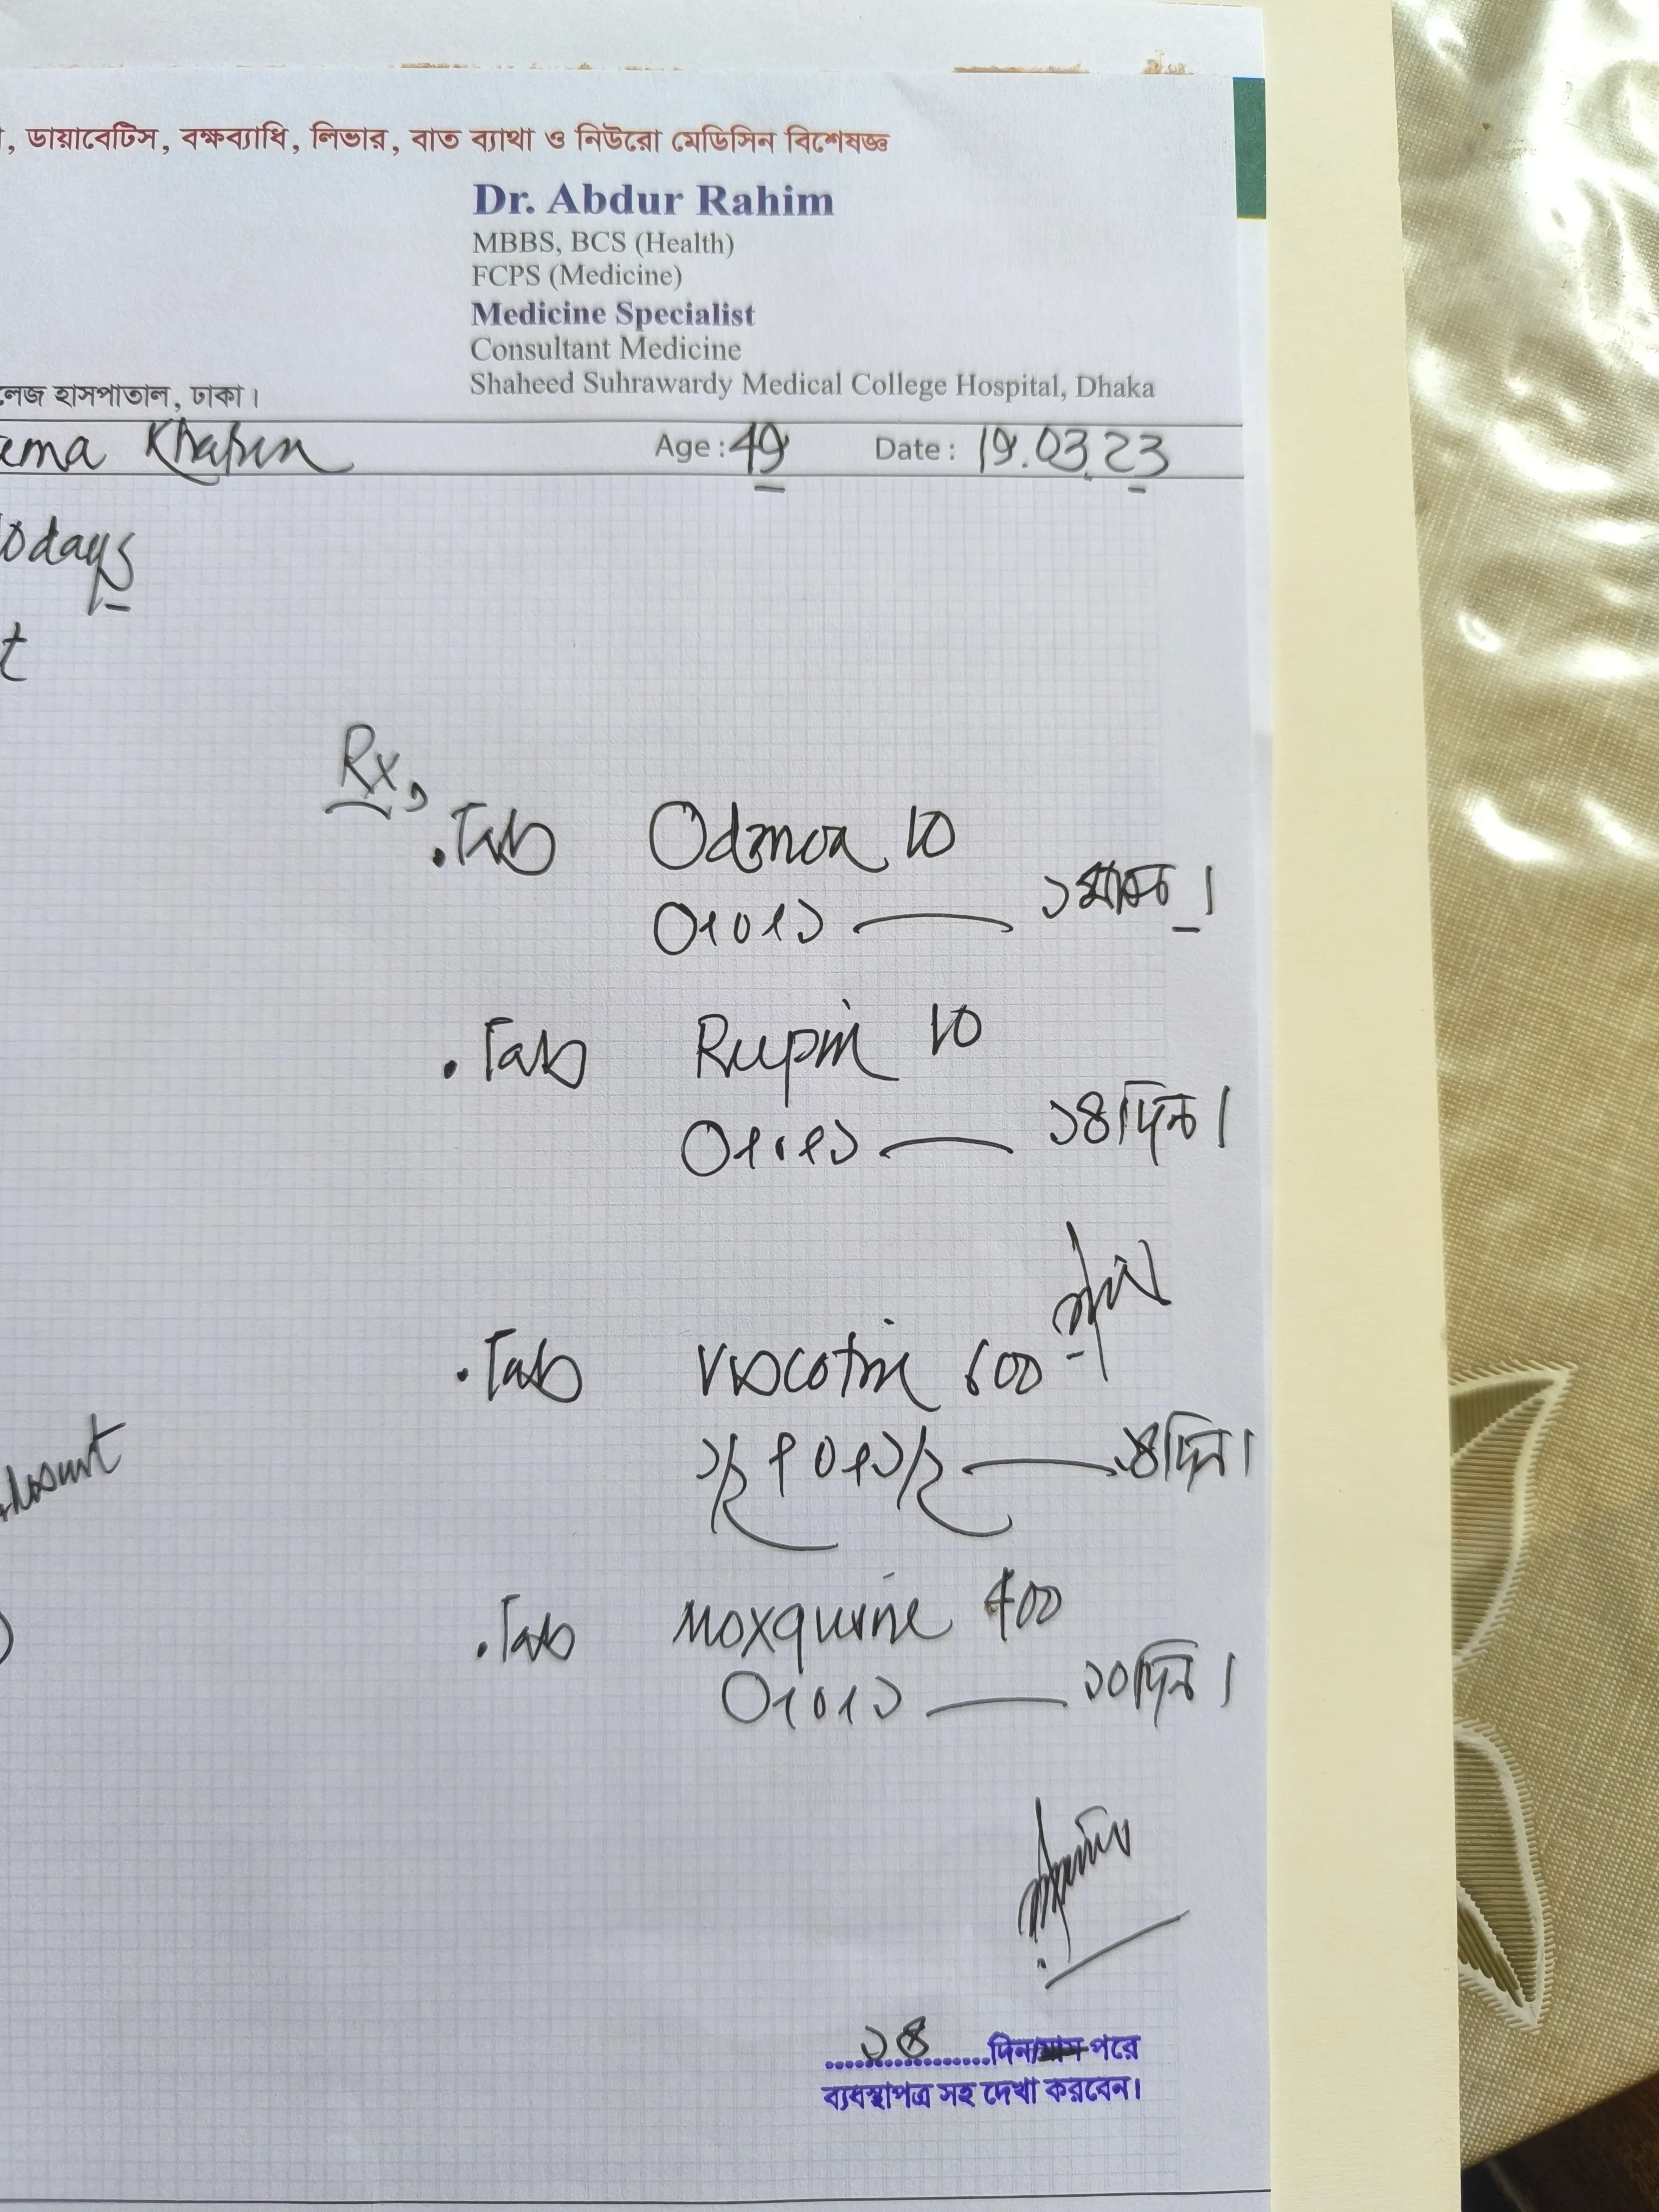 , ডায়াবেটিস, বক্ষব্যাধি, লিভার, বাত ব্যাথা ও নিউরো মেডিসিন বিশেষজ্ঞ
Dr. Abdur Rahim
MBBS, BCS (Health)
FCPS (Medicine)
Medicine Specialist
Consultant Medicine
Shaheed Suhrawardy Medical College Hospital, Dhaka
লেজ হাসপাতাল, ঢাকা।
ema Khatun Age: 49 Date: 19.03.23
0 days
t
Rx,
. Tab Odmon 10
0+0+১ — ১মাস।
. Tab Rupin 10
0+0+১ — ১৪দিন।
. Tab Viscotin 600
১/২+0+১/২ — ১৪দিন।
. Tab Moxquine 400
0+0+১ — ১০দিন।
১৪ দিন/মাস পরে
ব্যবস্থাপত্র সহ দেখা করবেন।